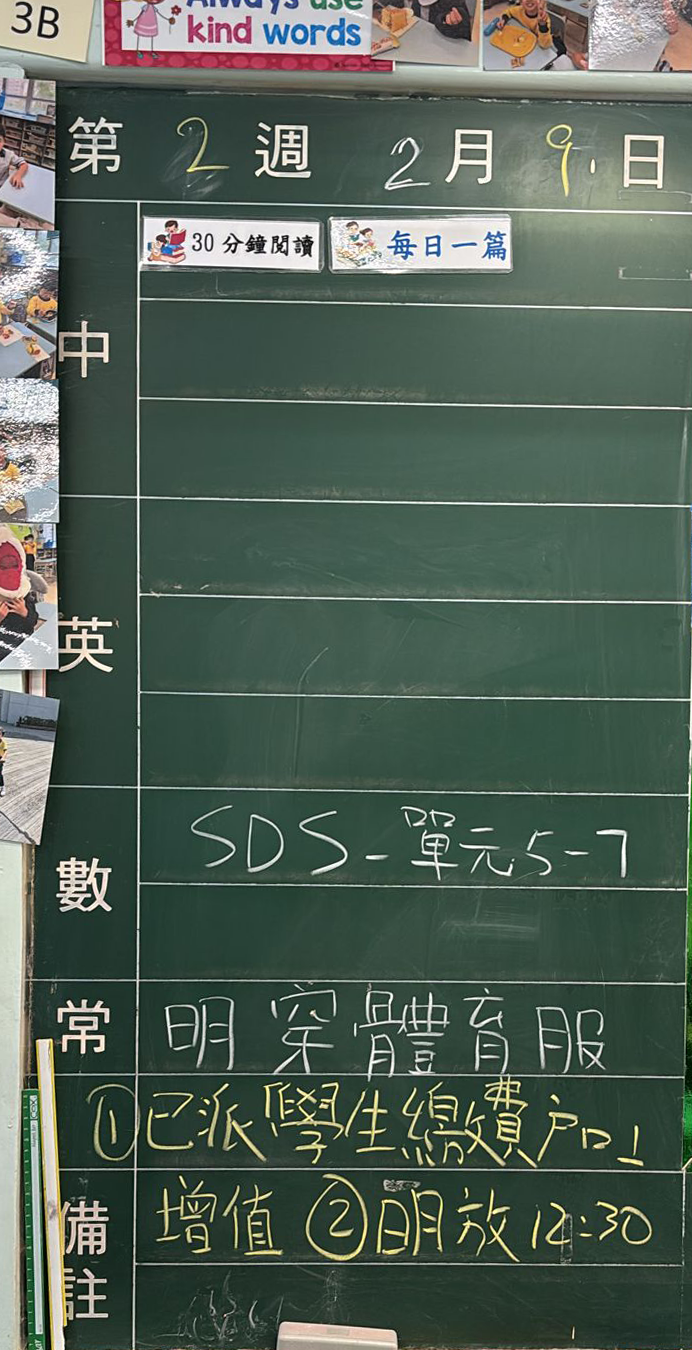 3B
Always use
kind words
第 2 週 2 月 9 日
30分鐘閱讀 每日一篇
中
英
數 SDS-單元5-7
常 明穿體育服
①已派「學生繳費户口
備註 增值 ②明放12:30